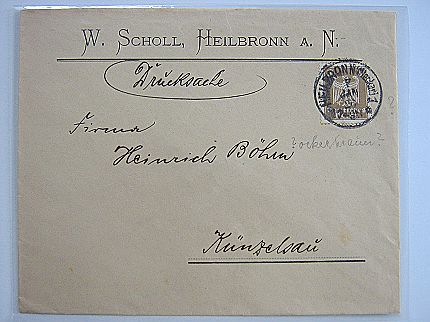 W. Scholl, Heilbronn a. N.
Drucksache
HEILBRONN
Firma
? ockerbraun?
Heinrich Böhm
Künzelsau